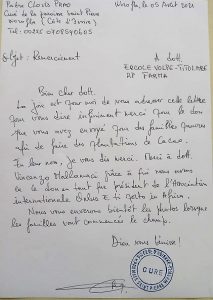 Padre Clovis PRAO
Curé de la paroisse Saint Pierre
Worofla (Côte d'Ivoire)
Tel: 00225 0708590605
Worofla, le 05 Août 2021
Objet: Remerciement
A dott.
ERCOLE VOLPE - TITOLARE
RP FARMA
Bien cher dott.
La joie est pour moi de vous adresser cette lettre
pour vous dire infiniment merci pour le don
que vous avez envoyé pour des familles pauvres
afin de faire des plantations de Cacao.
En leur nom, je vous dis merci. Merci à dott.
Vincenzo Mallamaci grâce à qui nous avons
eu ce don en tant que président de l'Association
internationale
en Africa.
Nous vous enverrons bientôt les photos lorsque
les familles vont commencer le champ.
Dieu vous bénisse!
CURE